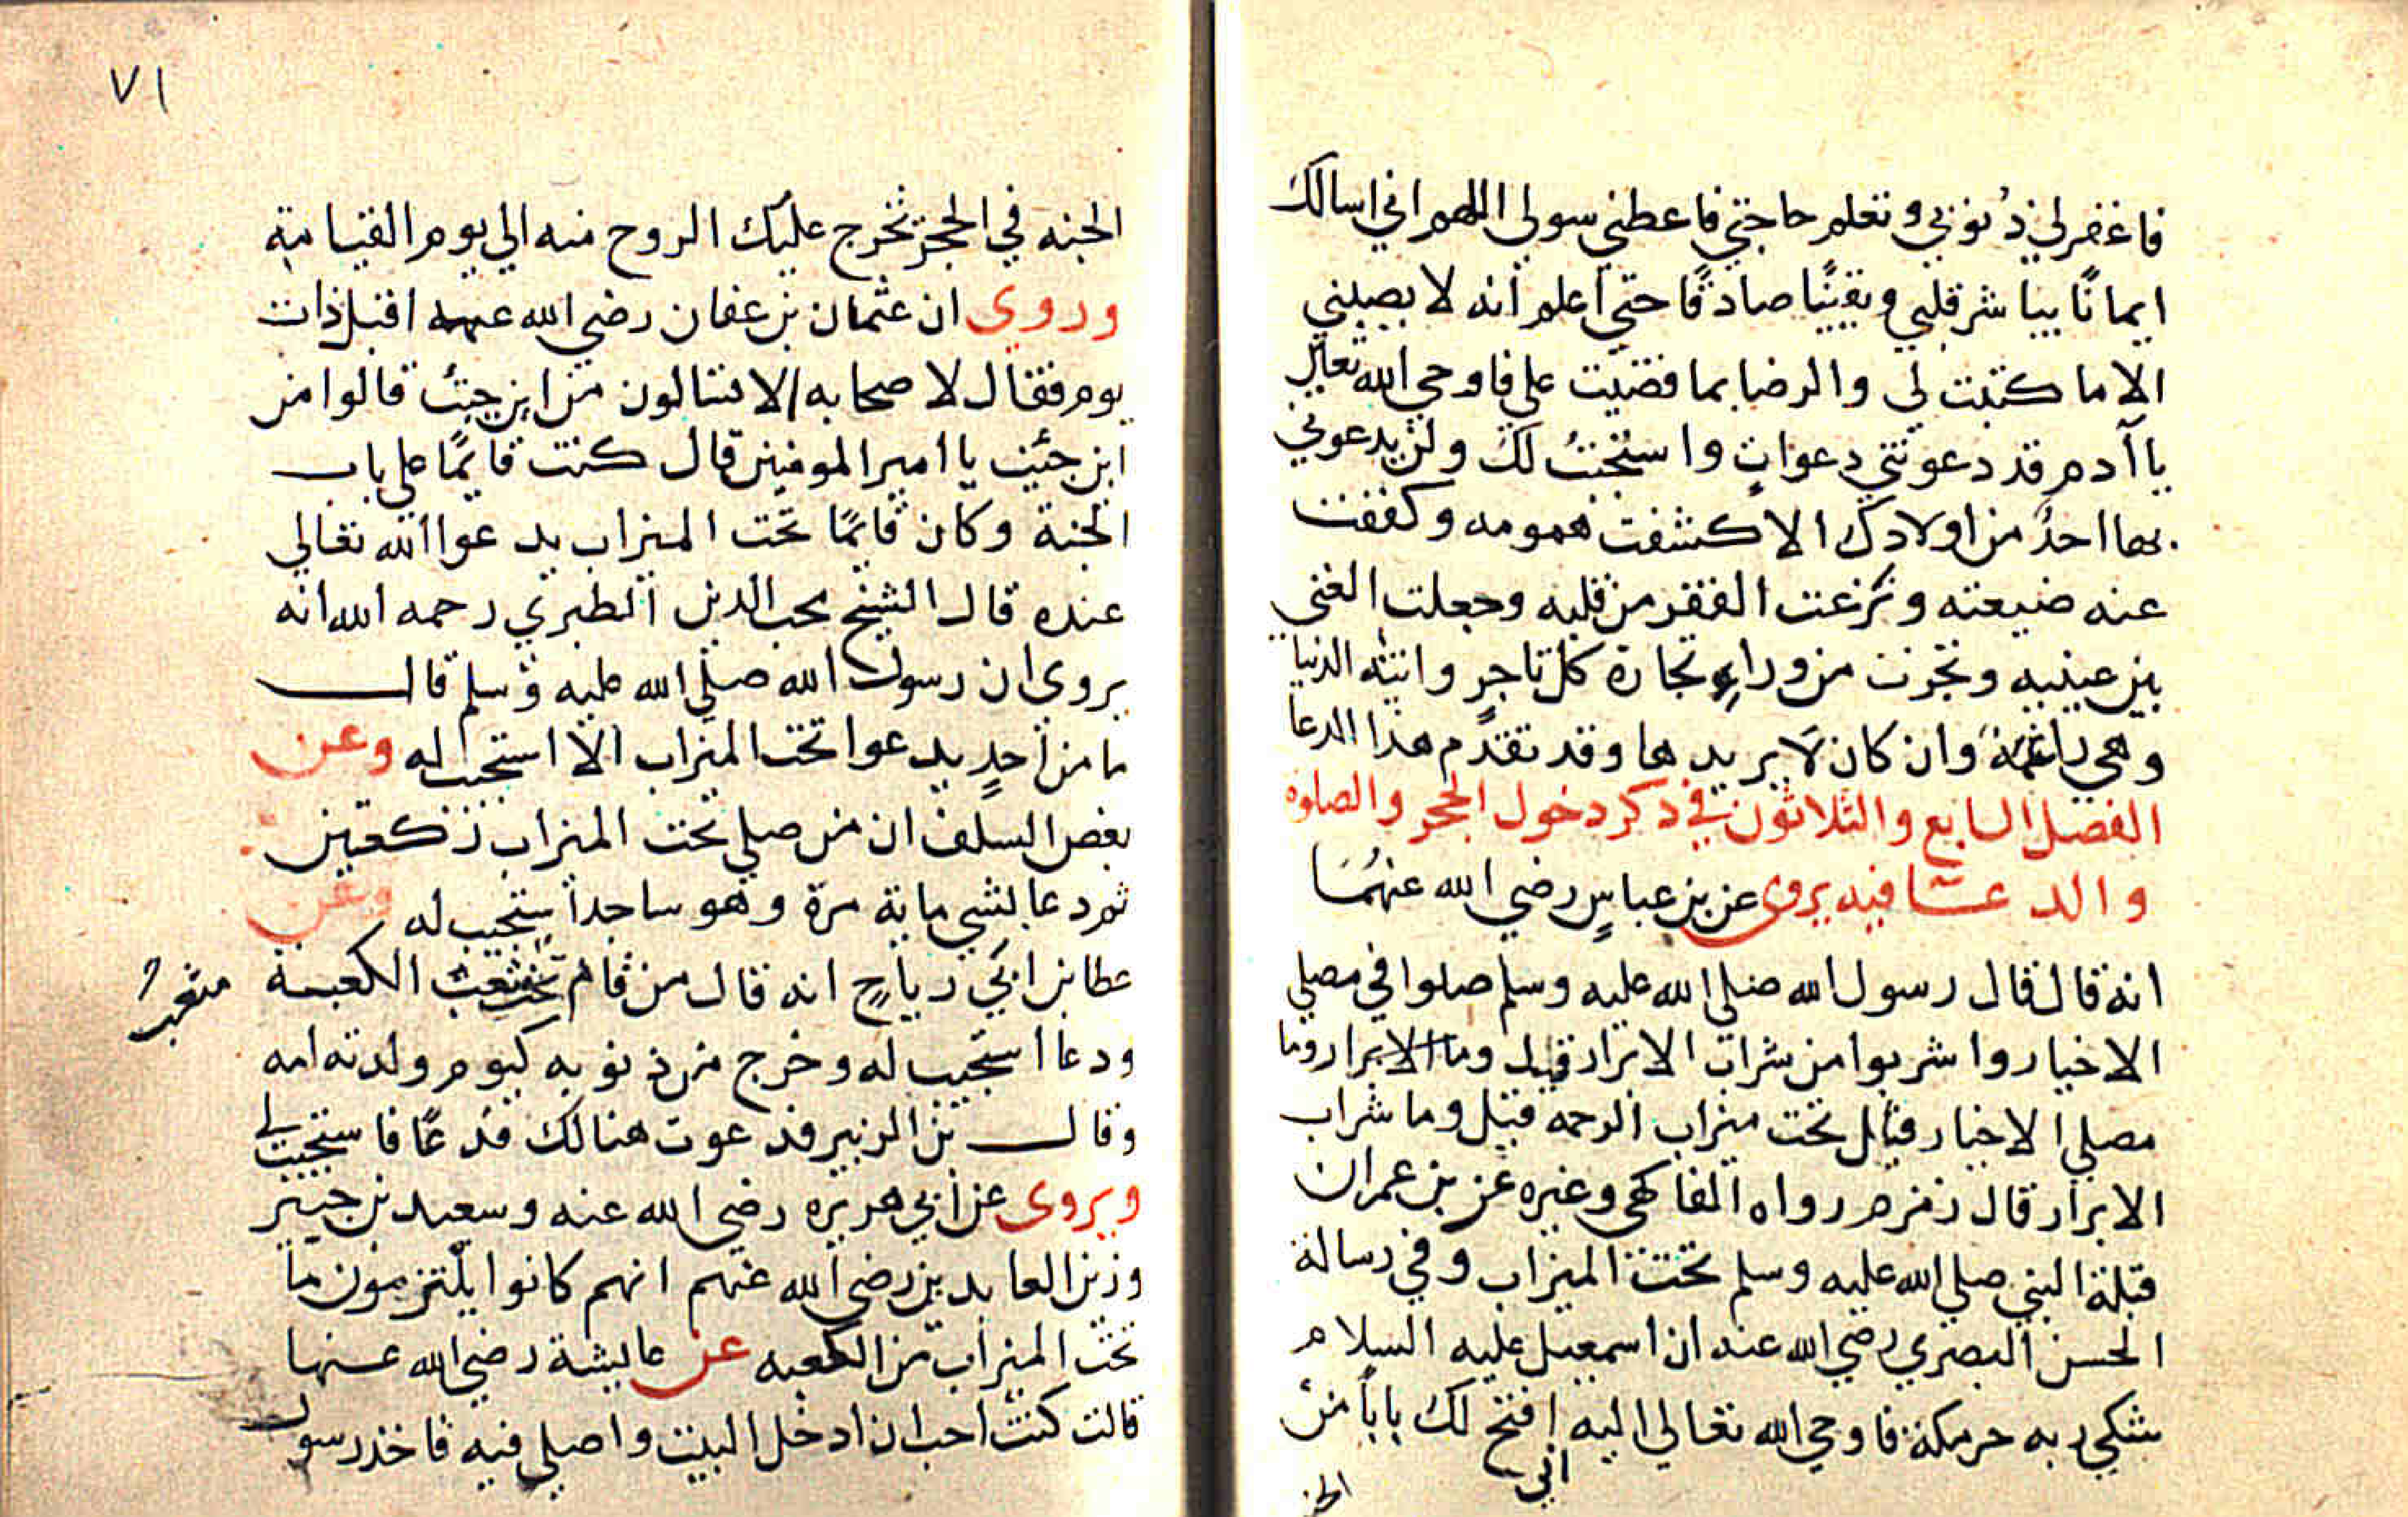 فاغفرلي ذنوبي وتعلم حاجتي فاعطني سولي اللهم اني اسالك
ايمانًا يباشر قلبي ويقينًا صادقًا حتي اعلم انه لا يصيبني
الا ما كتبت لي والرضا بما قضيت علي فاوحي الله تعالي
يا آدم قد دعوتني دعواتٍ واستجبتُ لك ولن يدعوني
بها احدٌ من اولادك الا كشفت همومه وكففت
عنه ضيعته ونزعت الفقر من قلبه وجعلت الغني
بين عينيه وتجرت من وراءِ تجارة كل تاجرٍ واتته الدنيا
وهي راغمة وان كان لا يريدها وقد تقدم هذا الدعا
الفصل السابع والثلاثون في ذكر دخول الحجر والصلوه
والدعا فيه يروى عن بن عباسٍ رضي الله عنهُمَا
انه قال قال رسول الله صلي الله عليه وسلم صلوا في مصلي
الاخيار واشربوا من شراب الابرار قيل وما الابرار وما
مصلي الاخيار قيال تحت ميزاب الرحمه قيل وما شراب
الابرار قال زمزم رواه الفاكهي وغيره عن بن عمران
قبلة النبي صلي الله عليه وسلم تحت الميزاب وفي رسالة
الحسن البصري رضي الله عنه ان اسمعيل عليه السلام
شكي ربه حر مكة فاوحي الله تعالي اليه افتح لك باباً من
اني
الجنه
٧١
الجنه في الحجر تخرج عليك الروح منه الي يوم القيامة
وروي ان عثمان بن عفان رضي الله عنه اقبل ذات
يوم فقال لاصحابه الا تسالون من اين جيت قالوا من
اين جئيت يا امير المومنين قال كنت قايمًا علي باب
الجنة وكان قايمًا تحت الميزاب يدعوا الله تعالي
عنده قال الشيخ محب الدين الطبري رحمه الله انه
يروي ان رسول الله صلي الله عليه وسلم قال
ما من احدٍ يدعوا تحت الميزاب الا استجيب له وعن
بعض السلف ان من صلي تحت الميزاب ركعتين
ثم دعا بشي ماية مرة وهو ساجدا ستجيب له وعن
عطا بن ابي رباحٍ انه قال من قام تحت مثعب الكعبة
مثعب
ودعا استجيب له وخرج من ذنوبه كيوم ولدته امه
وقال بن الزبير قد عوت هنالك قد عًا فاستجيب لي
ويروى عن ابي هريره رضي الله عنه وسعيد بن جبير
وزين العابدين رضي الله عنهم انهم كانوا يلتزمون ما
تحت الميزاب من الكعبه عن عايشة رضي الله عنها
قالت كنت احب ان ادخل البيت واصلي فيه فاخذ رسول